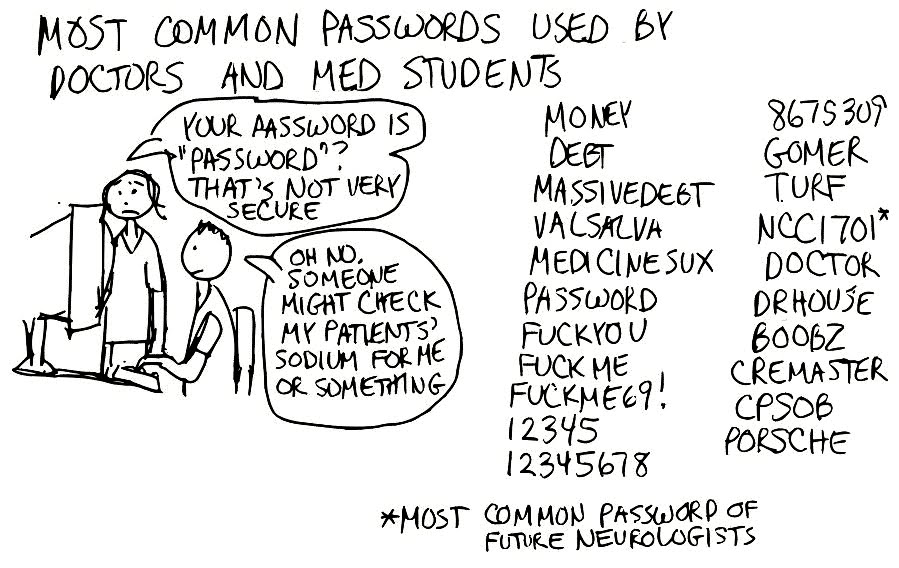 MOST COMMON PASSWORDS USED BY
DOCTORS AND MED STUDENTS
YOUR PASSWORD IS
"PASSWORD"?
THAT'S NOT VERY
SECURE
OH NO.
SOMEONE
MIGHT CHECK
MY PATIENTS'
SODIUM FOR ME
OR SOMETHING
MONEY
DEBT
MASSIVEDEBT
VALSALVA
MEDICINESUX
PASSWORD
FUCKYOU
FUCKME
FUCKME69!
12345
12345678
8675309
GOMER
TURF
NCC1701*
DOCTOR
DRHOUSE
BOOBZ
CREMASTER
CPSOB
PORSCHE
*MOST COMMON PASSWORD OF
FUTURE NEUROLOGISTS